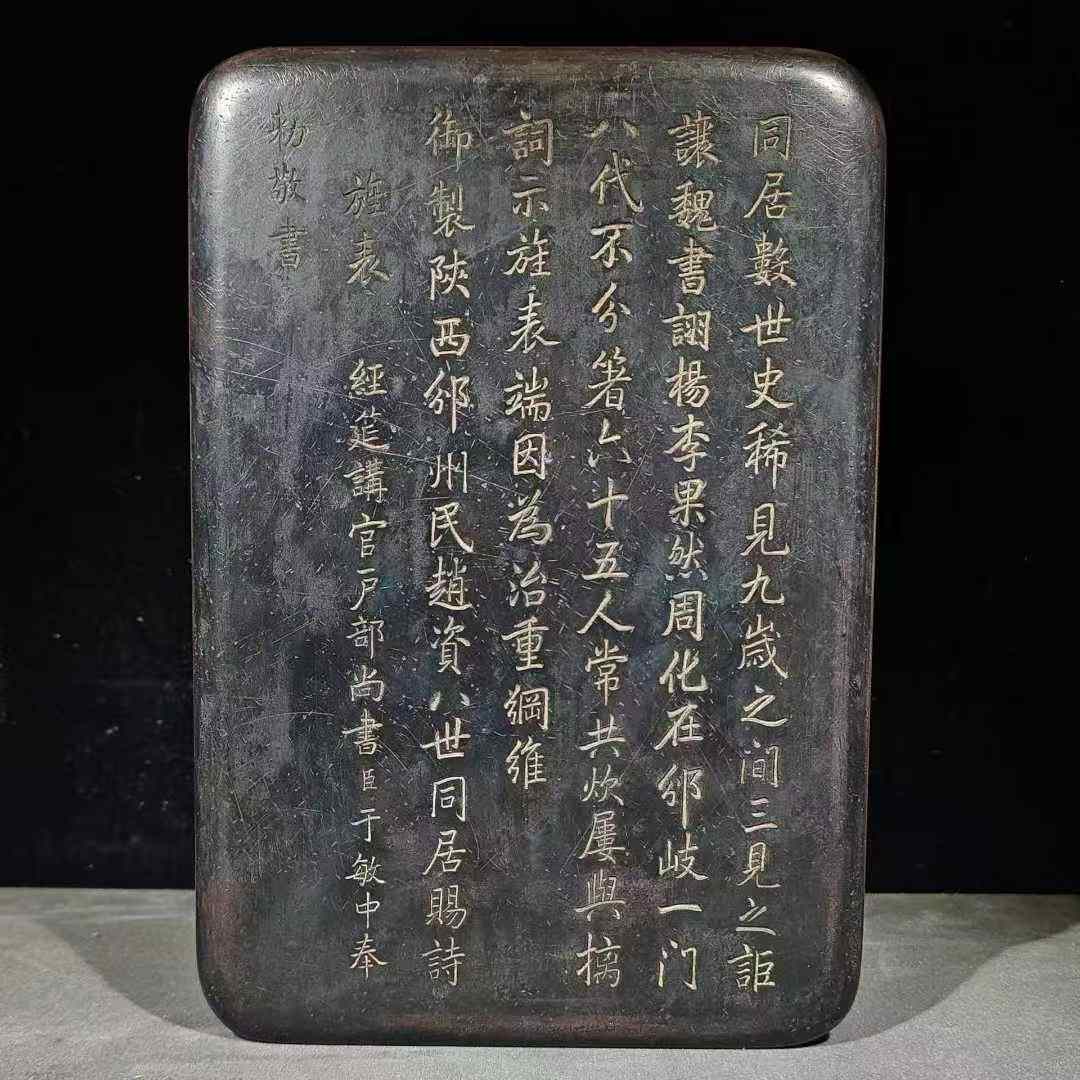 同居數世史稀見九歲之间三見之詎
讓魏書詡楊李果然周化在邠岐一门
八代不分箸六十五人常共炊屢與摛
詞示旌表端因為治重綱維
御製陝西邠州民趙資八世同居賜詩
旌表 經筵講官戸部尚書臣于敏中奉
勑敬書